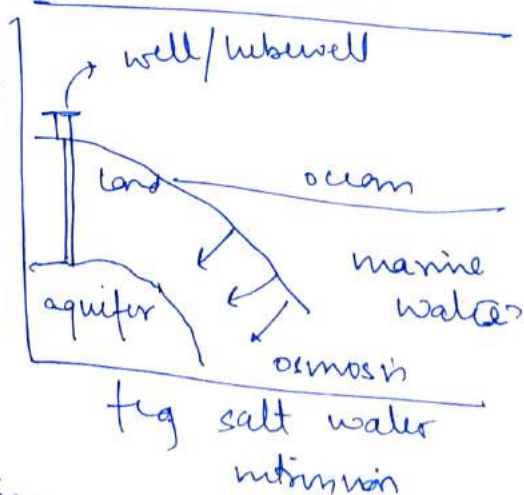 well/tubewell
land
ocean
marine
water
aquifer
osmosis
fig salt water
intrusion